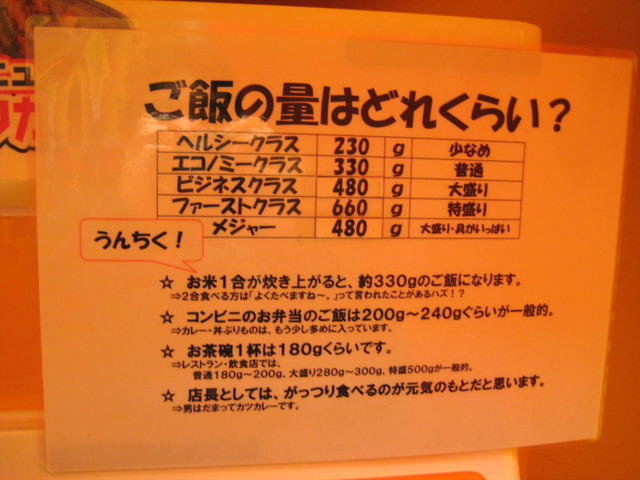 ニュ
ご飯の量はどれくらい？
ヘルシークラス 230 g 少なめ
エコノミークラス 330 g 普通
ビジネスクラス 480 g 大盛り
ファーストクラス 660 g 特盛り
メジャー 480 g 大盛り・具がいっぱい
うんちく！
☆ お米１合が炊き上がると、約330gのご飯になります。
⇒2合食べる方は「よくたべますね～。」って言われたことがあるハズ！？
☆ コンビニのお弁当のご飯は200g～240gぐらいが一般的。
⇒カレー・丼ぶりものは、もう少し多めに入っています。
☆ お茶碗１杯は180gくらいです。
⇒レストラン・飲食店では、
普通180g～200g、大盛り280g～300g、特盛500gが一般的。
☆ 店長としては、がっつり食べるのが元気のもとだと思います。
⇒男はだまってカツカレーです。